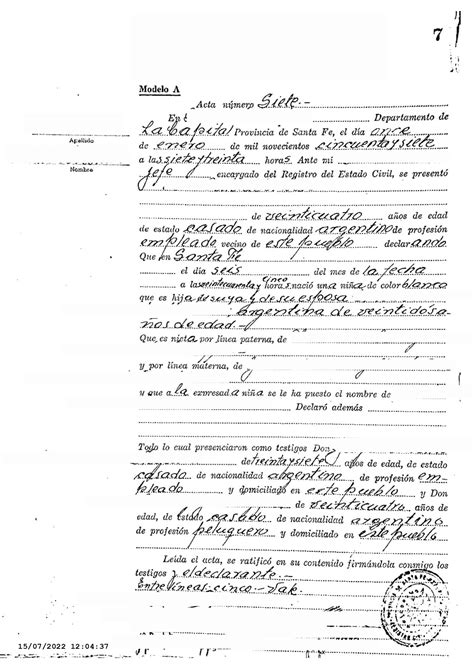 7
Modelo A
Acta número Siete.-
En Departamento de
La Capital Provincia de Santa Fe, el día once
Apellido
de enero de mil novecientos cincuenta y siete
a las siete y treinta horas. Ante mi
Nombre
Jefe encargado del Registro del Estado Civil, se presentó
de veinticuatro años de edad
de estado casado de nacionalidad argentino de profesión
empleado vecino de este pueblo declarando
Que en Santa Fe
el día seis del mes de la fecha
cinco
a las veinte cuarenta y horas nació una niña de color blanca
que es hija suya y de su esposa
argentina de veintidós a-
ños de edad.-
Que es nieta por línea paterna, de
y
y por línea materna, de y
y que a la expresada niña se le ha puesto el nombre de
Declaró además
Todo lo cual presenciaron como testigos Don
de treinta y siete años de edad, de estado
casado de nacionalidad argentino de profesión em-
pleado y domiciliado en este pueblo y Don
de veinticuatro años de
edad, de estado casado de nacionalidad argentino
de profesión peluquero y domiciliado en este pueblo
Leída el acta, se ratificó en su contenido firmándola conmigo los
testigos y el declarante.-
Entre líneas-cinco-Vale.
15/07/2022 12:04:37